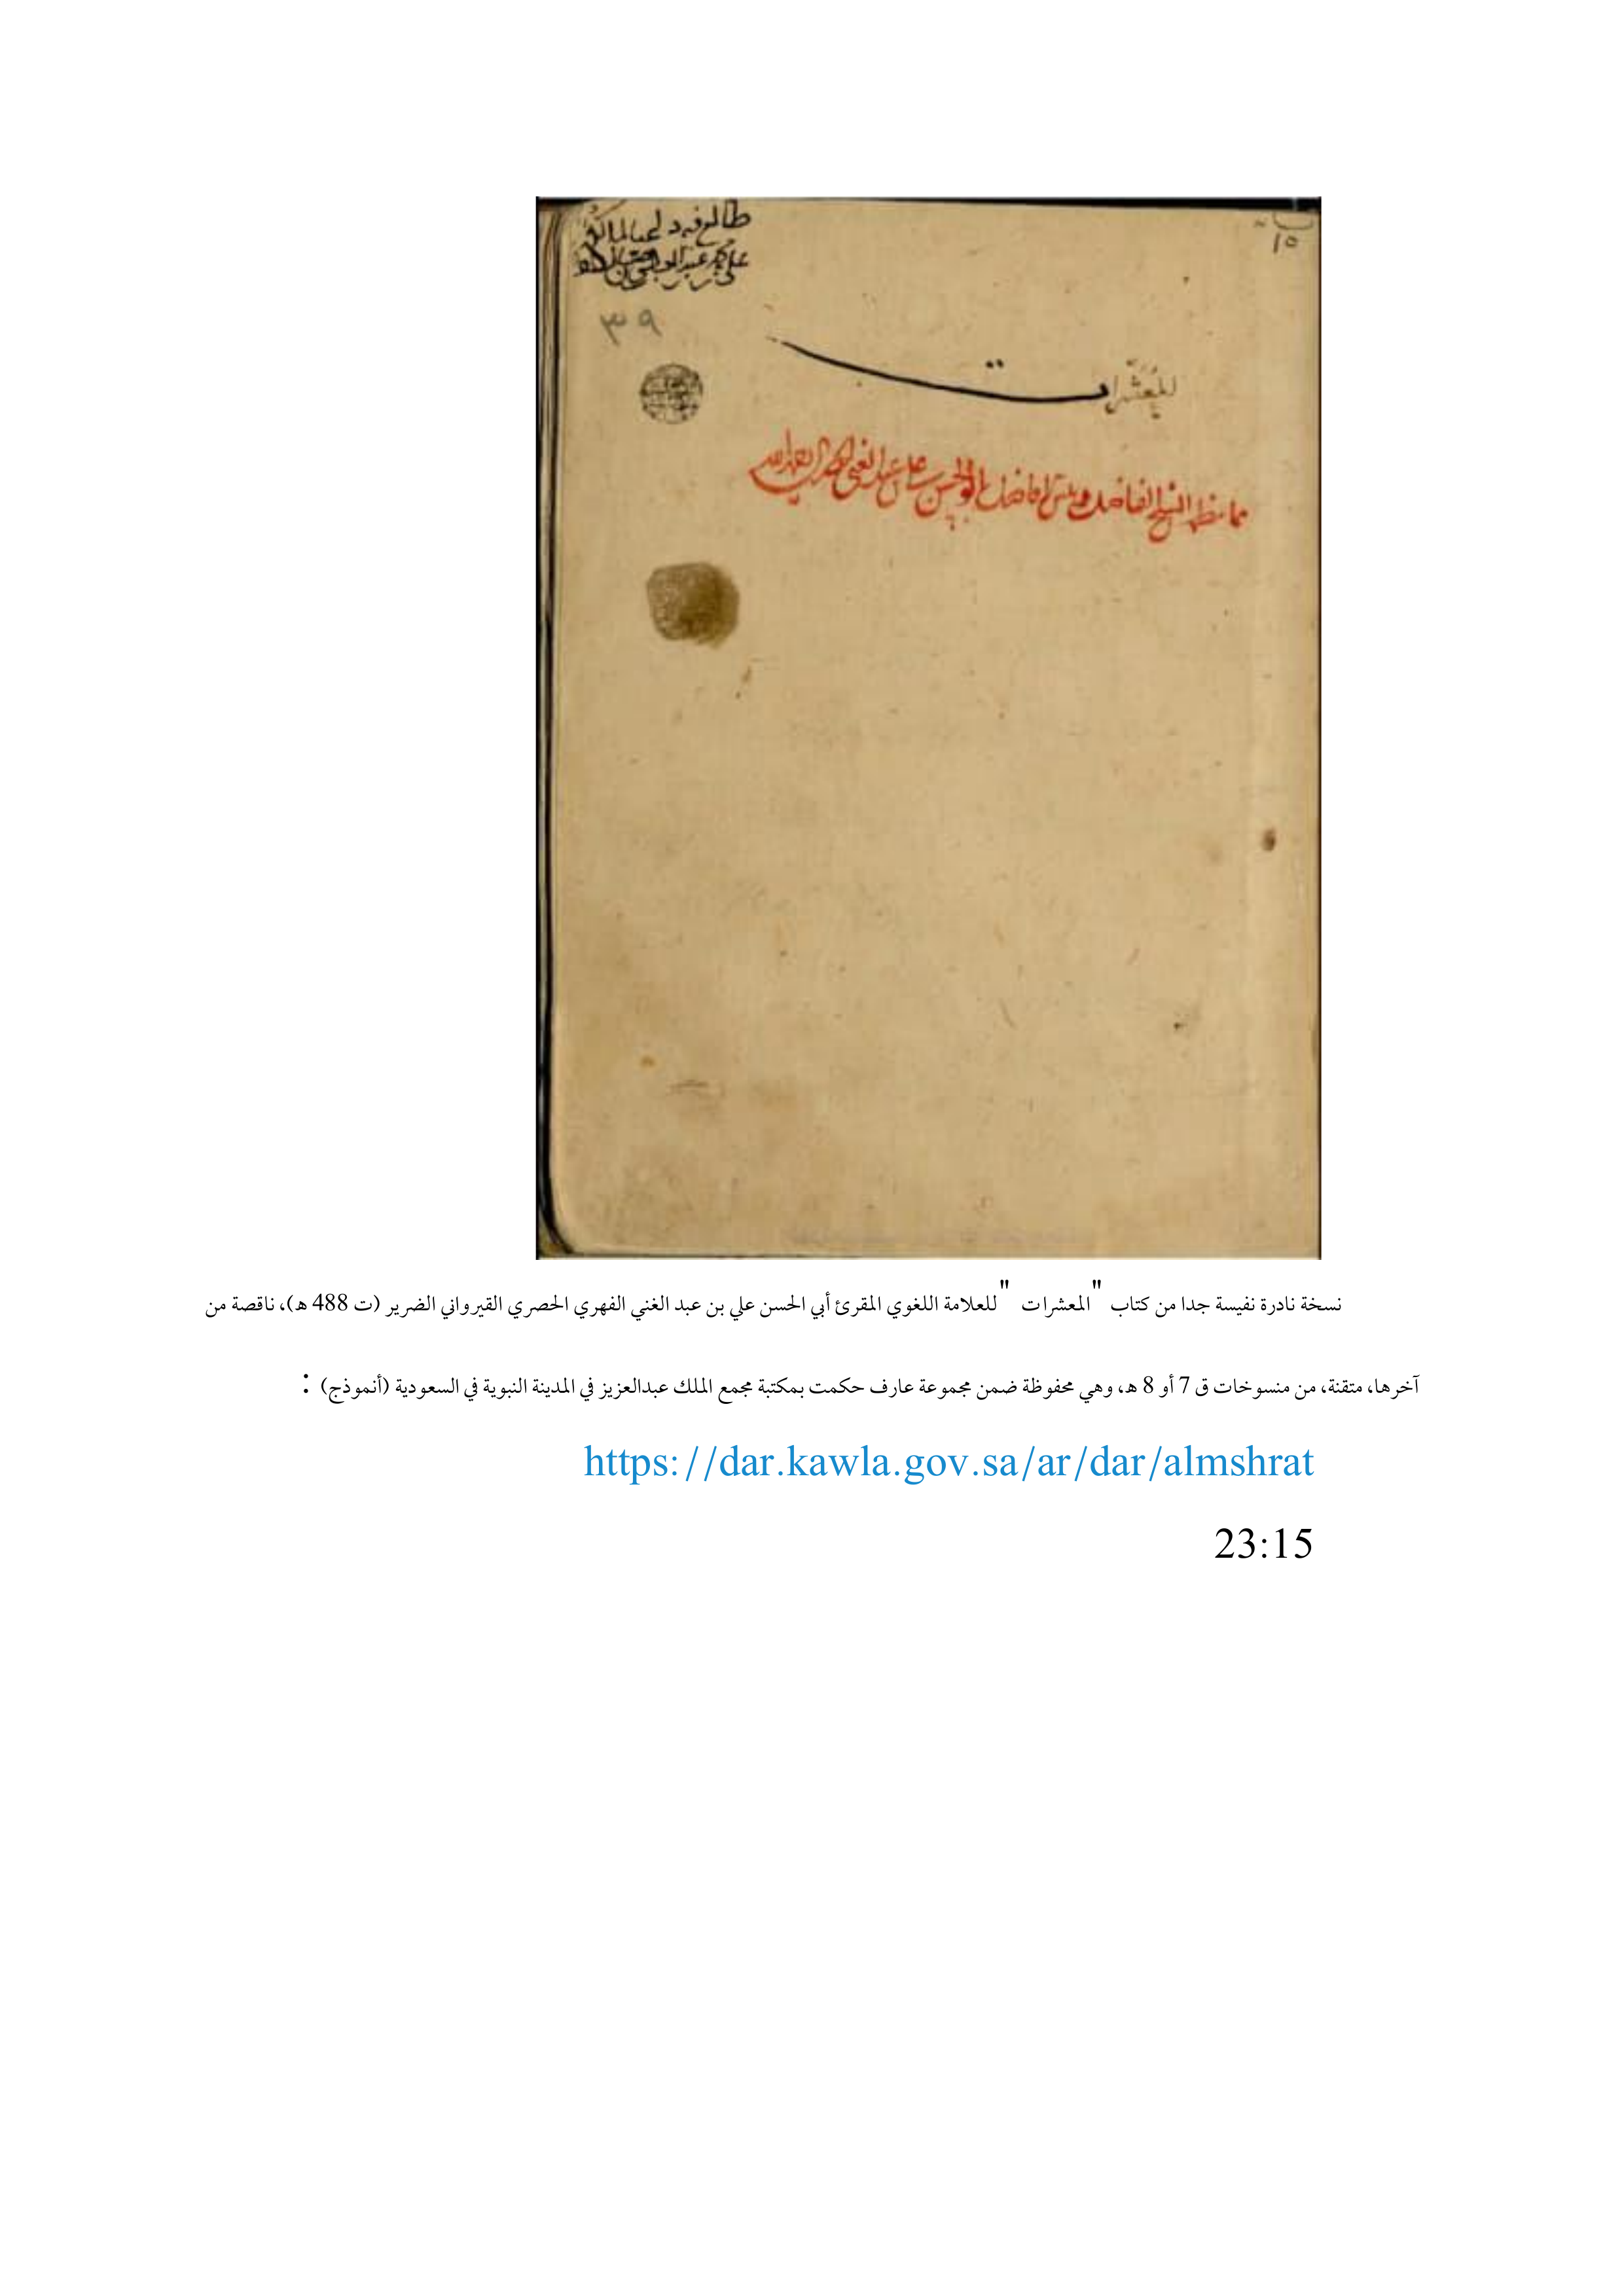 ١٥
طالع فيه
٣٩
المعشرات
مما نظم الشيخ الفاضل أبو الحسن علي عبد الغني
نسخة نادرة نفيسة جدا من كتاب "المعشرات" للعلامة اللغوي المقرئ أبي الحسن علي بن عبد الغني الفهري الحصري القيرواني الضرير (ت 488 هـ)، ناقصة من
آخرها، متقنة، من منسوخات ق 7 أو 8 هـ، وهي محفوظة ضمن مجموعة عارف حكمت بمكتبة مجمع الملك عبدالعزيز في المدينة النبوية في السعودية (أنموذج) :
https://dar.kawla.gov.sa/ar/dar/almshrat
23:15